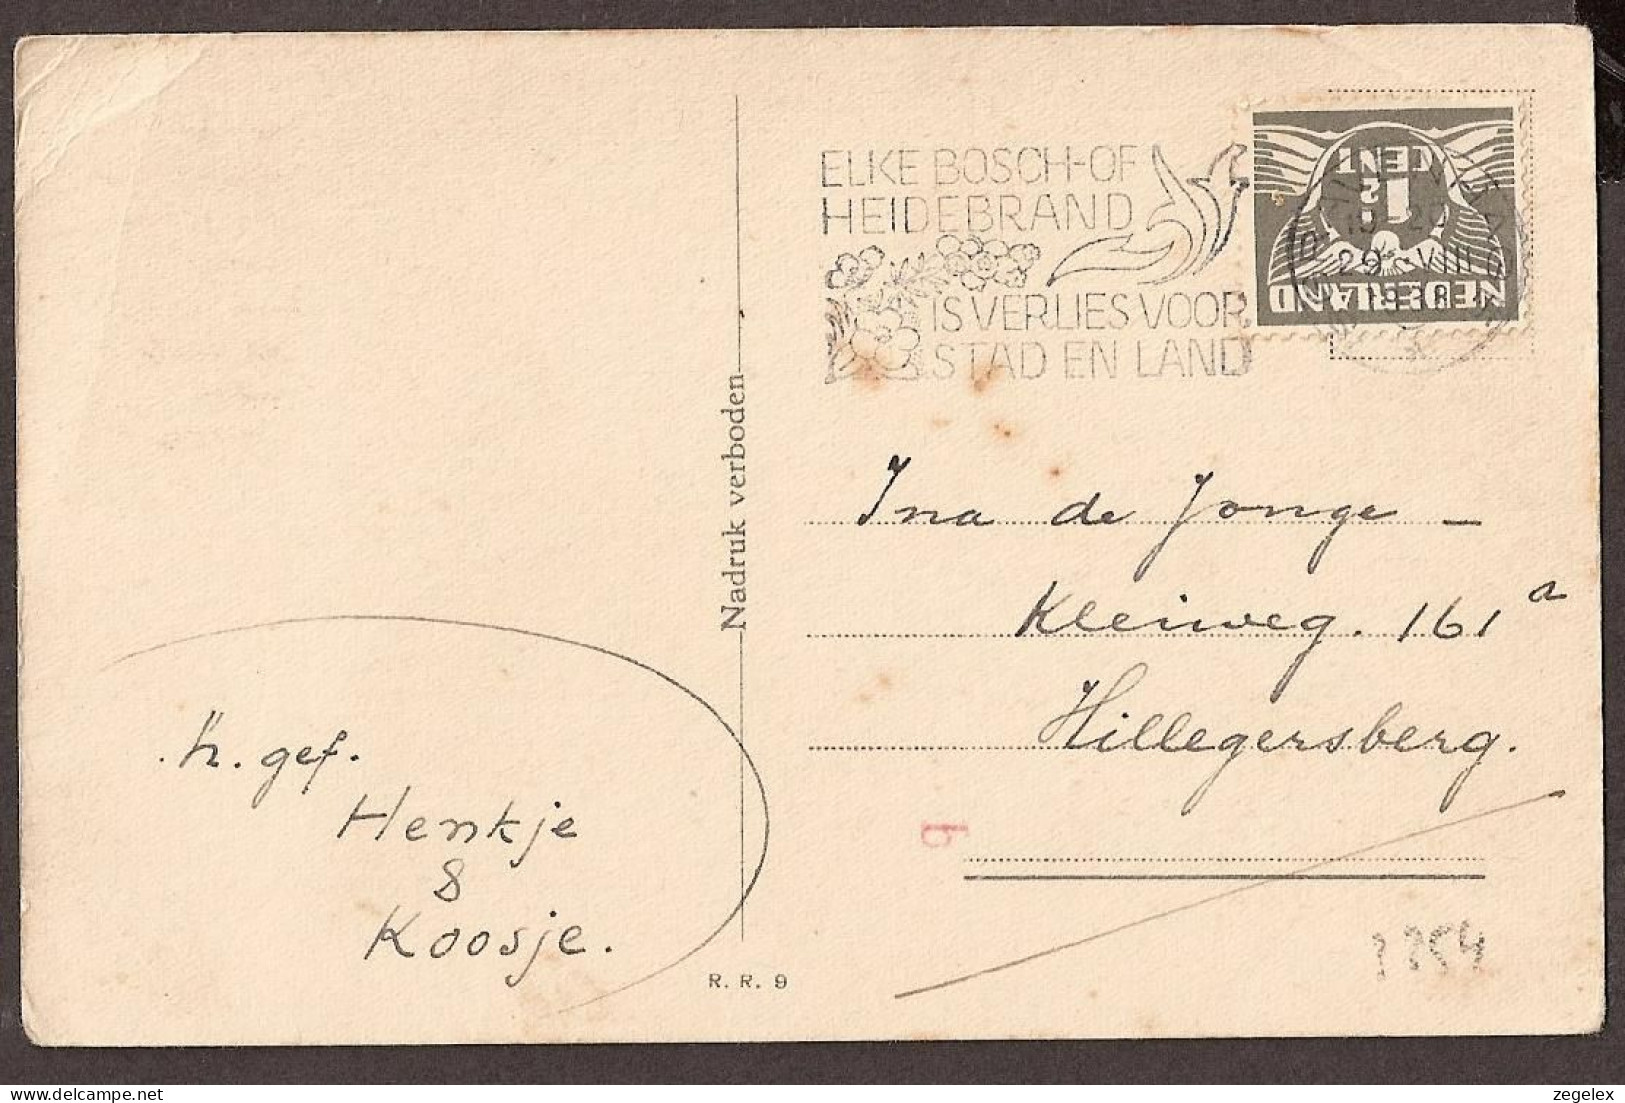 ELKE BOSCH-OF
HEIDEBRAND
IS VERLIES VOOR
STAD EN LAND
CENT
NEDERLAND
29 VIII
Nadruk verboden
Ina de Jonge –
Kleiweg. 161 a
Hillegersberg.
h. gef.
Henkje
&
Koosje.
b
R. R. 9
zegelex